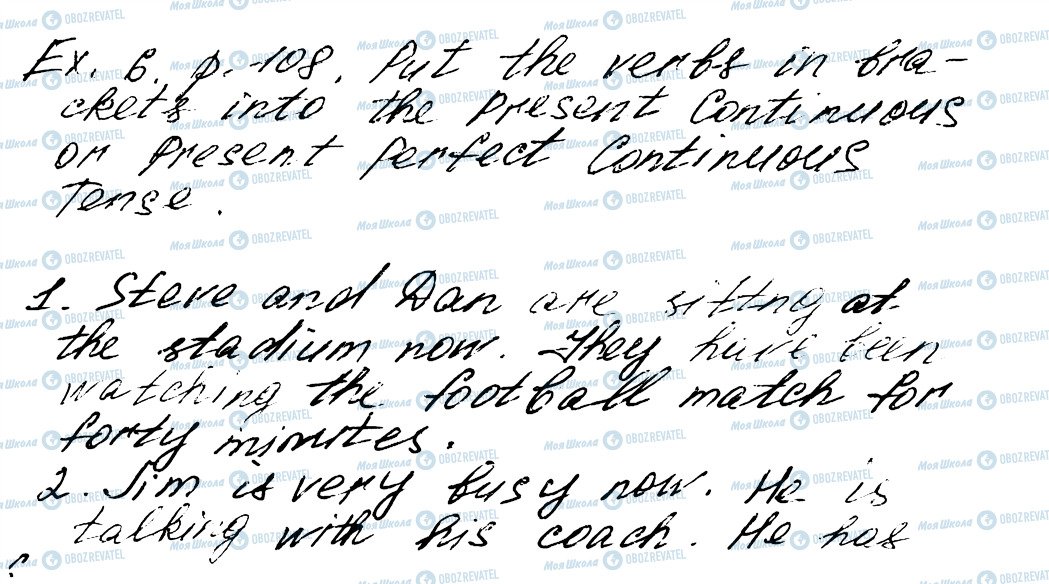 Ex. 6. p. 108. Put the verbs in bra-
ckets into the Present Continuous
or Present Perfect Continuous
Tense.
1. Steve and Dan are sitting at
the stadium now. They have been
watching the football match for
forty minutes.
2. Jim is very busy now. He is
talking with his coach. He has